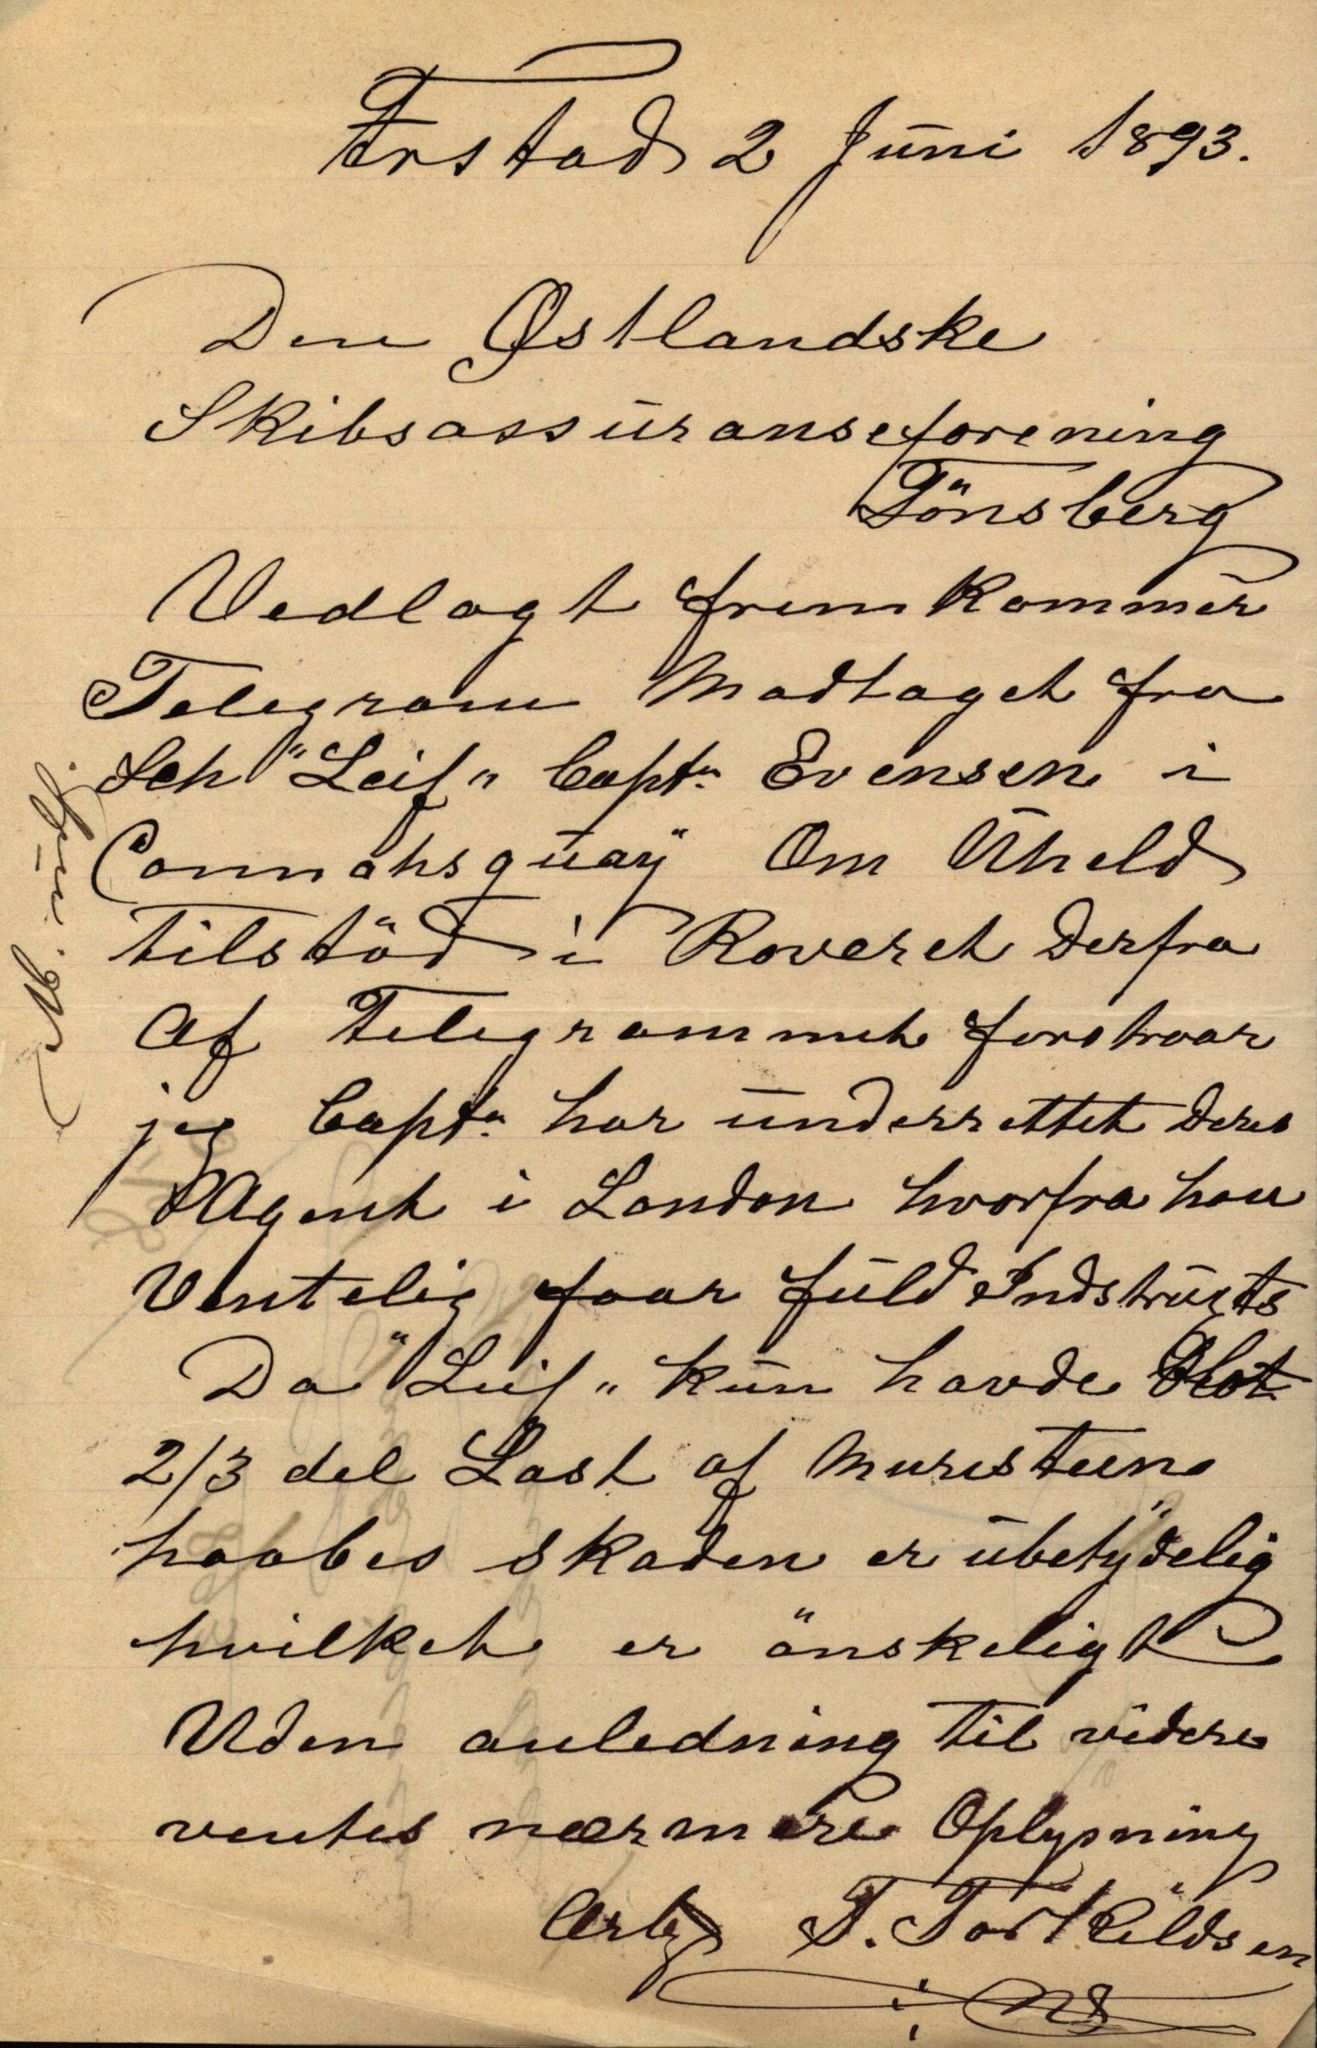 Fristad 2 Juni 1893.
Den Østlandske
Skibsassuranseforening
Tönsberg
Vedlagt fremkommer
Telegram Modtaget fra
Sch "Leif" Captn Evensen i
Connahsquay Om Uheld
tilstöd i Roveret derfra
Af Telegrammet forstaar
jeg Captn har underrettet deres
Agent i London hvorfra han
Ventelig faar fuld Indstrugts
Da "Leif" kun havde
2/3 del Last af Mursteen
haabes skaden er ubetydelig
hvilket er önskeligt
Uden anledning til videre
ventes nærmere Oplysning
Erbg T. Torkildsen